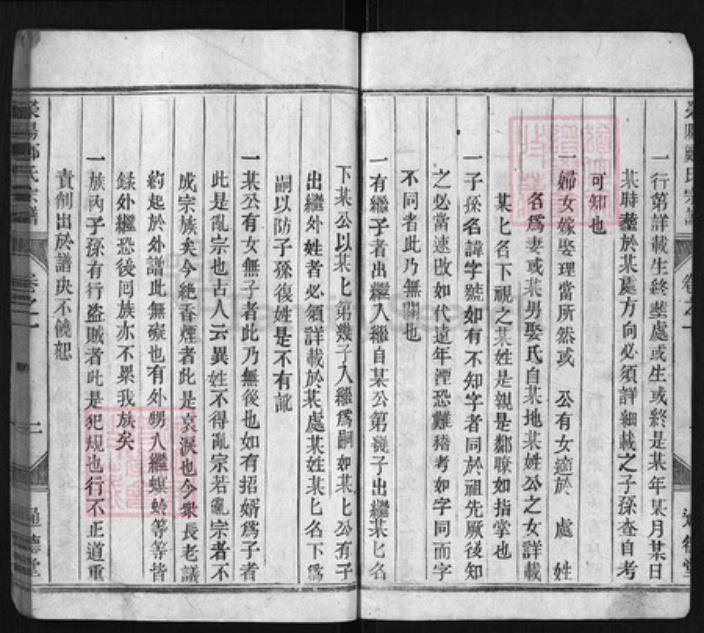 一行第詳載生終塟處或生或終是某年某月某日
某時塟於某處方向必須詳細載之子孫查自考
可知也
一婦女嫁娶理當所然或 公有女適於 處 姓
名爲妻或某男娶氏自某地某姓公之女詳載
某匕名下視之某姓是親是鄰瞭如指掌也
一子孫名諱字號如有不知字者同於祖先厥後知
之必當速改如代遠年湮恐難稽考如字同而字
不同者此乃無關也
一有繼子者出繼入繼自某公第幾子出繼某匕名
下某公以某匕第幾子入繼爲嗣如某匕公有子
出繼外姓者必須詳載於某處某姓某匕名下爲
嗣以防子孫復姓是不有訛
一某公有女無子者此乃無後也如有招婿爲子者
此是亂宗也古人云異姓不得亂宗若亂宗者不
成宗族矣今絶香煙者此是哀淚也今衆長老議
約起於外譜此無礙也有外甥入繼螟蛉等等皆
錄外繼恐後同族亦不累我族矣
一族內子孫有行盜賊者此是犯規也行不正道重
責削出於譜决不饒恕
滎陽鄭氏宗譜 卷之一 二 通德堂